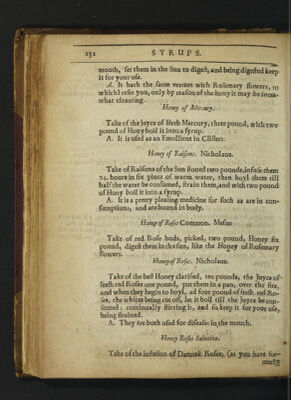 232 SYRUPS.
mouth, set them in the Sun to digest, and being digested keep
it for your use.
A. It hath the same vertues with Rosemary flowers, to
which I refer you, only by reason of the hony it may be some-
what cleansing.
Honey of Mercury.
Take of the juyce of Herb Mercury, three pound, with two
pound of Hony boil it into a syrup.
A. It is used as an Emollient in Clisters.
Honey of Raisons. Nicholaus.
Take of Raisons of the Sun stoned two pounds, infuse them
24. hours in six pints of warm water, then boyl them till
half the water be consumed, strain them, and with two pound
of Hony boil it into a syrup.
A. It is a pretty pleasing medicine for such as are in con-
sumptions, and are bound in body.
Honey of Roses Common. Mesue
Take of red Rose buds, picked, two pound, Honey six
pound, digest them in the sun, like the Honey of Rosemary
flowers.
Honey of Roses. Nicholaus.
Take of the best Honey clarified, ten pounds, the Juyce of
fresh red Roses one pound, put them in a pan, over the fire,
and when they begin to boyl, ad four pound of fresh red Ro-
ses, the whites being cut off, let it boil till the Juyce be con-
sumed; continually stirring it, and so keep it for your use,
being strained.
A. They are both used for diseases in the mouth.
Honey Roses Solutive.
Take of the infusion of Damask Roses, (as you have for-
merly